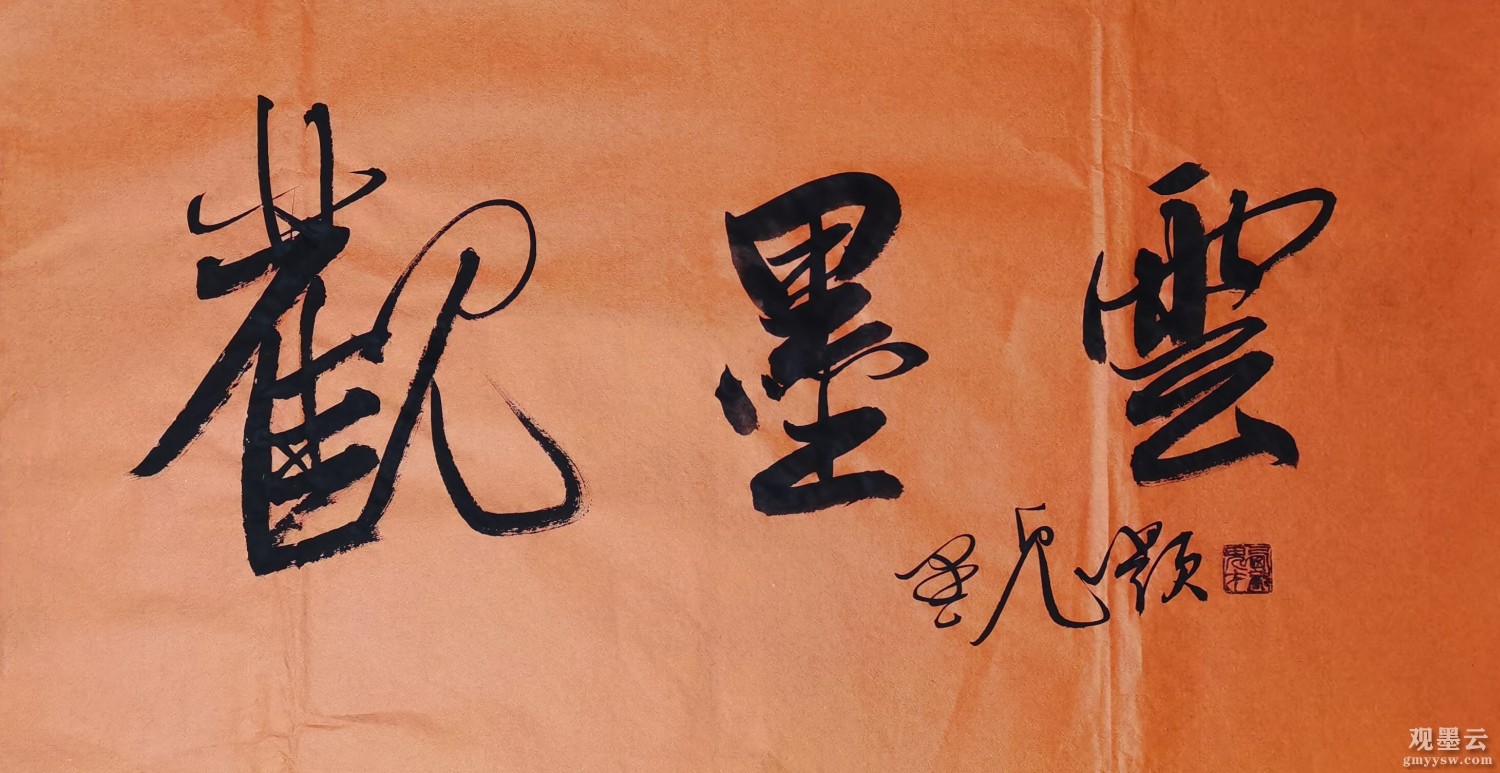 觀墨雲
题
观墨云
gmyysw.com